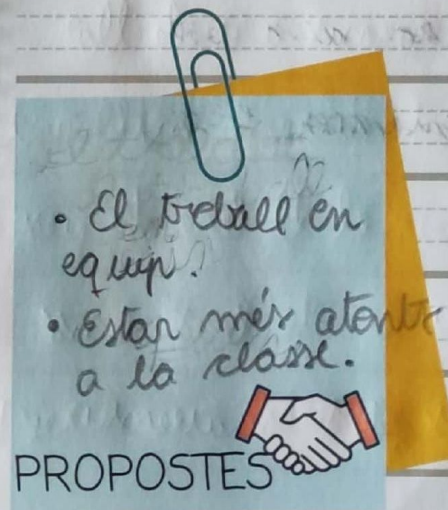 • El treball en
equip.
• Estar més atents
a la classe.
PROPOSTES